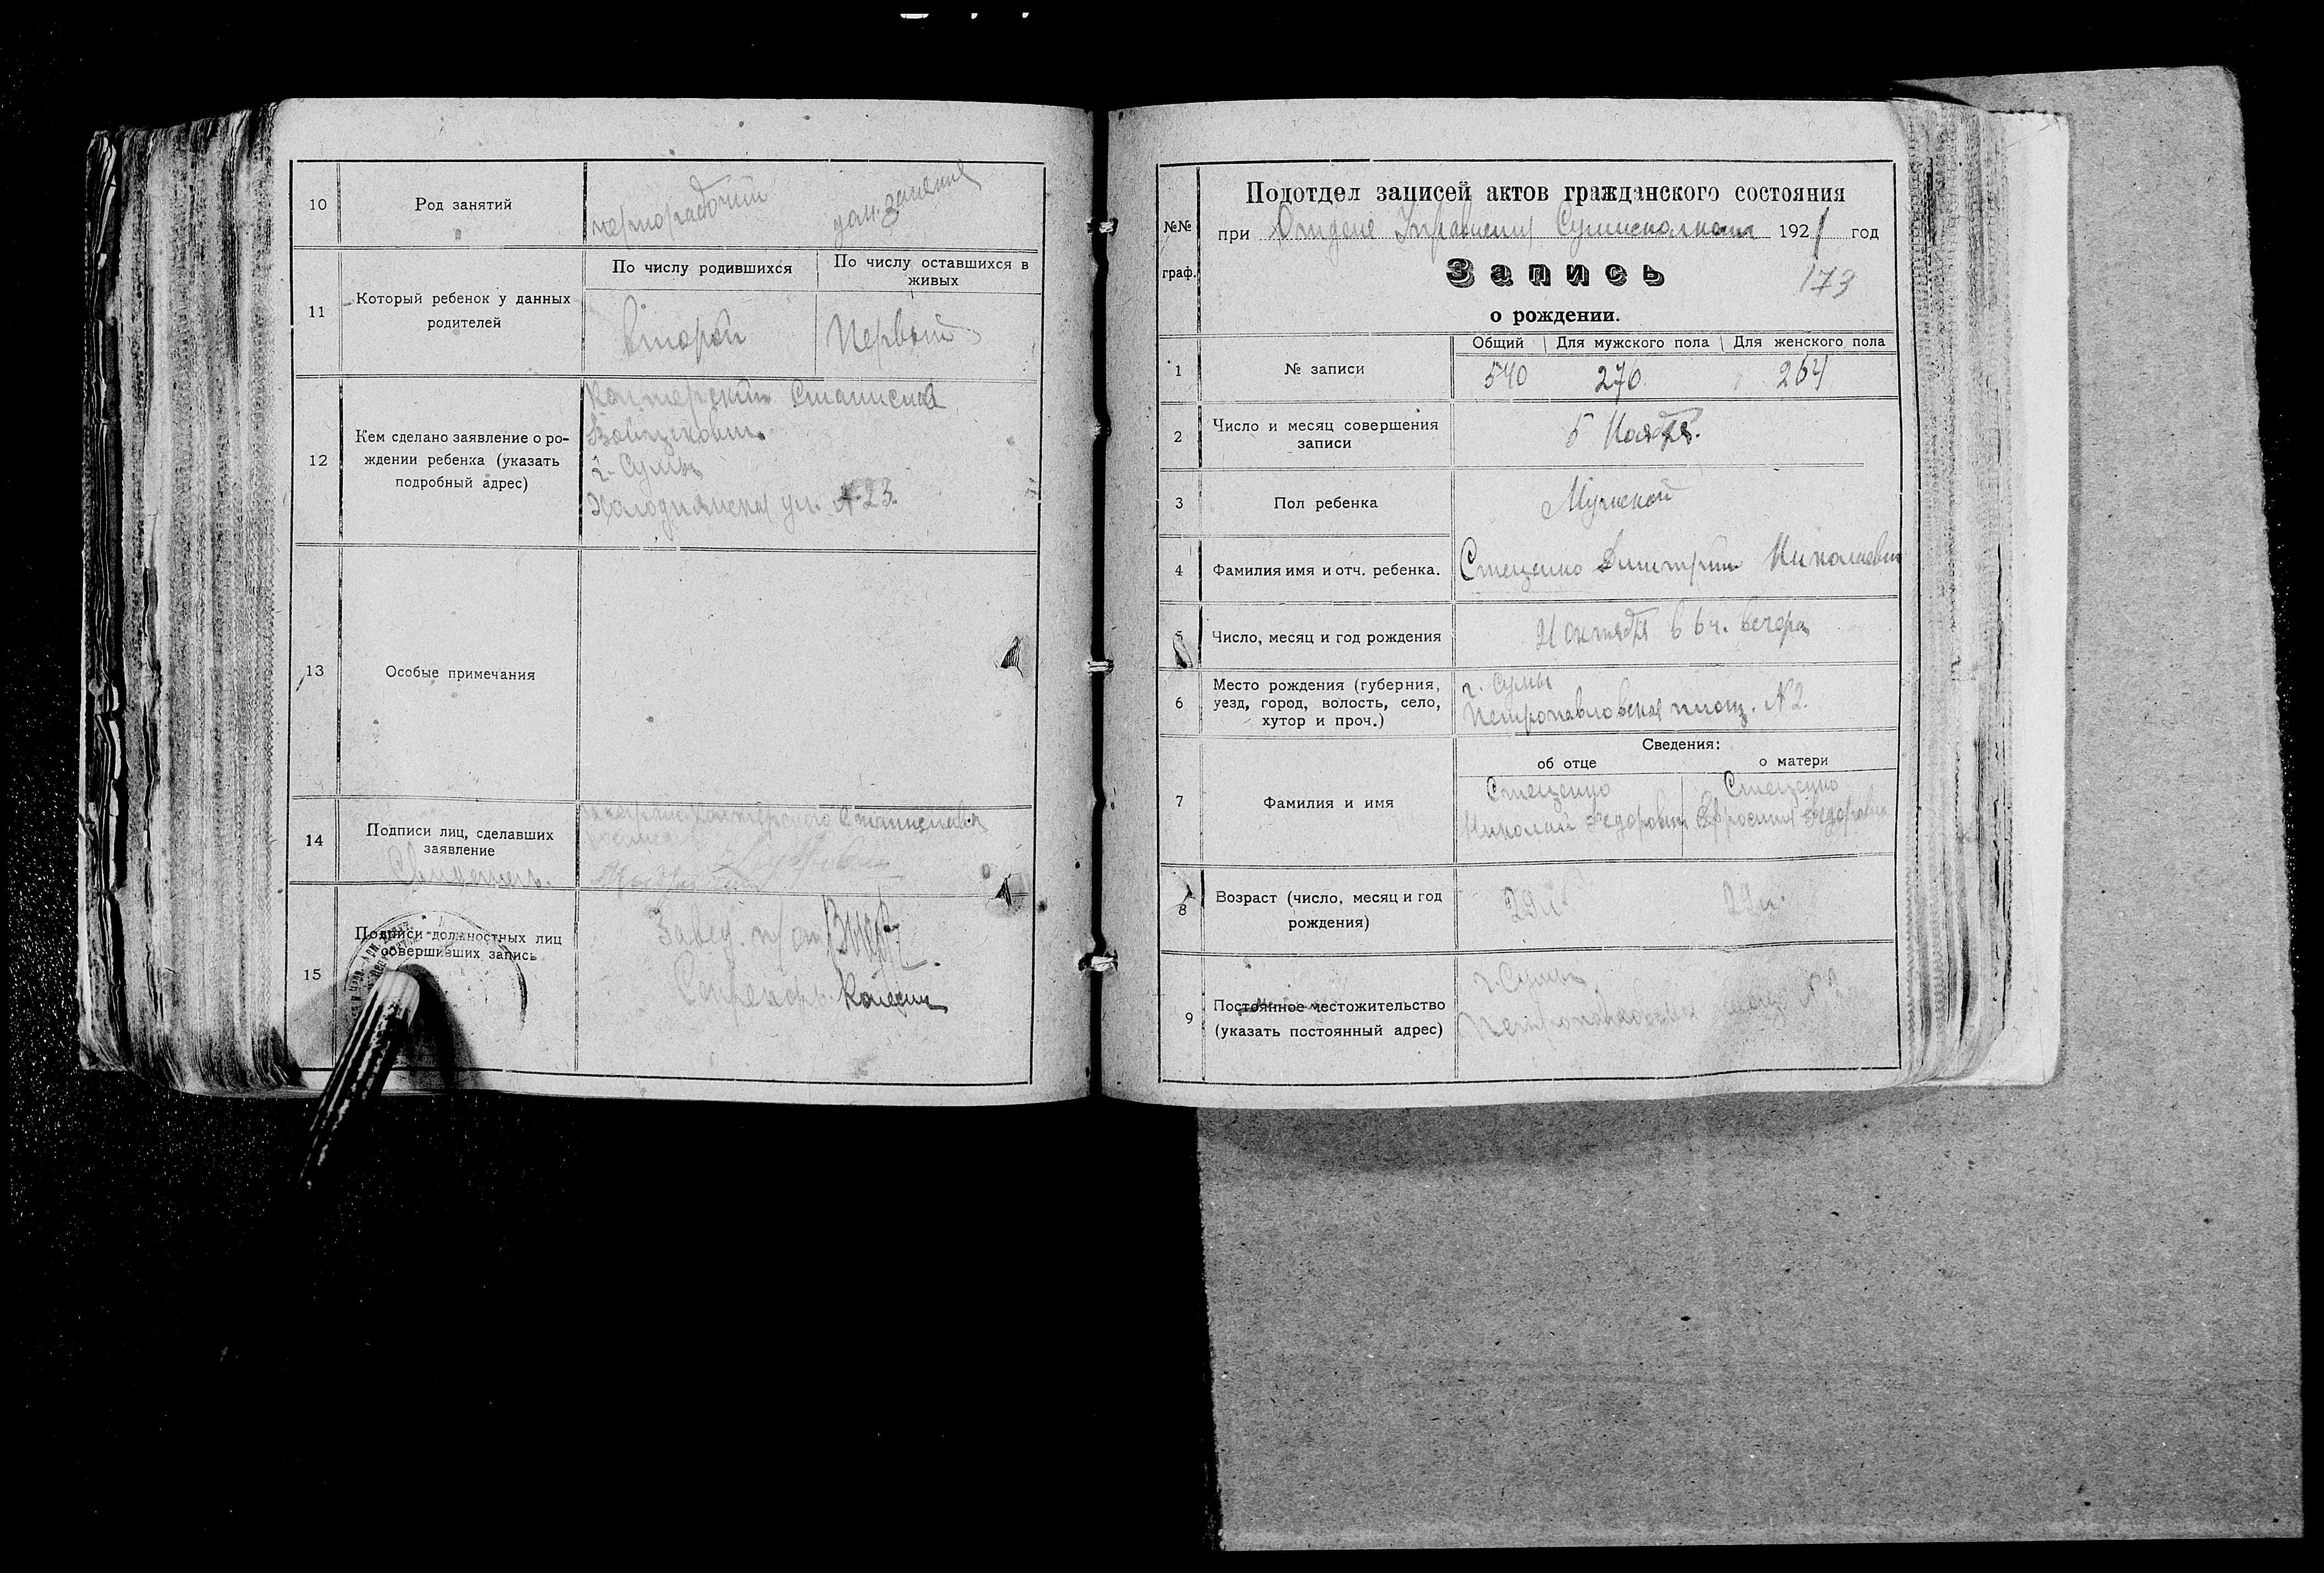 10 Род занятий чернорабочий дом. занятия
11 Который ребенок у данных родителей
По числу родившихся По числу оставшихся в живых
второй Первый
12 Кем сделано заявление о ро-
ждении ребенка (указать
подробный адрес)
Станислав
г. Сумы
ул. № 23.
13 Особые примечания
14 Подписи лиц, сделавших
заявление
Свидетель.
15 Подписи должностных лиц
совершивших запись
Завед. п/от
Секретарь
№№
граф.
Подотдел записей актов гражданского состояния
при Отделе Управления Сумисполкома 1921 год
Запись
173
о рождении.
Общий Для мужского пола Для женского пола
1 № записи 540 270. 264
2 Число и месяц совершения
записи
5 Ноября.
3 Пол ребенка Мужской
4 Фамилия имя и отч. ребенка. Стеценко Димитрий Николаевич
5 Число, месяц и год рождения 21 октября в 6 ч. вечера
6 Место рождения (губерния,
уезд, город, волость, село,
хутор и проч.)
г. Сумы
Петропавловская площ. № 2.
Сведения:
об отце о матери
7 Фамилия и имя
Стеценко Стеценко
Николай Федорович Ефросиния Федоровна
8 Возраст (число, месяц и год
рождения)
29 л. 29 л.
9 Постоянное местожительство
(указать постоянный адрес)
г. Сумы
Петропавловская площ. № 2